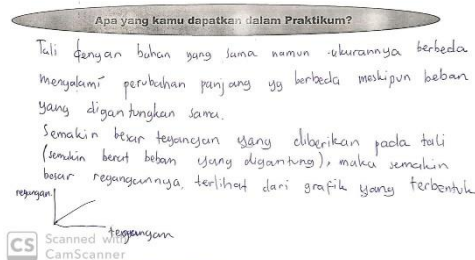 Apa yang kamu dapatkan dalam Praktikum?
Tali dengan bahan yang sama namun ukurannya berbeda
mengalami perubahan panjang yg berbeda meskipun beban
yang digantungkan sama.
Semakin besar tegangan yang diberikan pada tali
(semakin berat beban yang digantung), maka semakin
besar regangannya. terlihat dari grafik yang terbentuk
regangan
tegangan
CS Scanned with
CamScanner